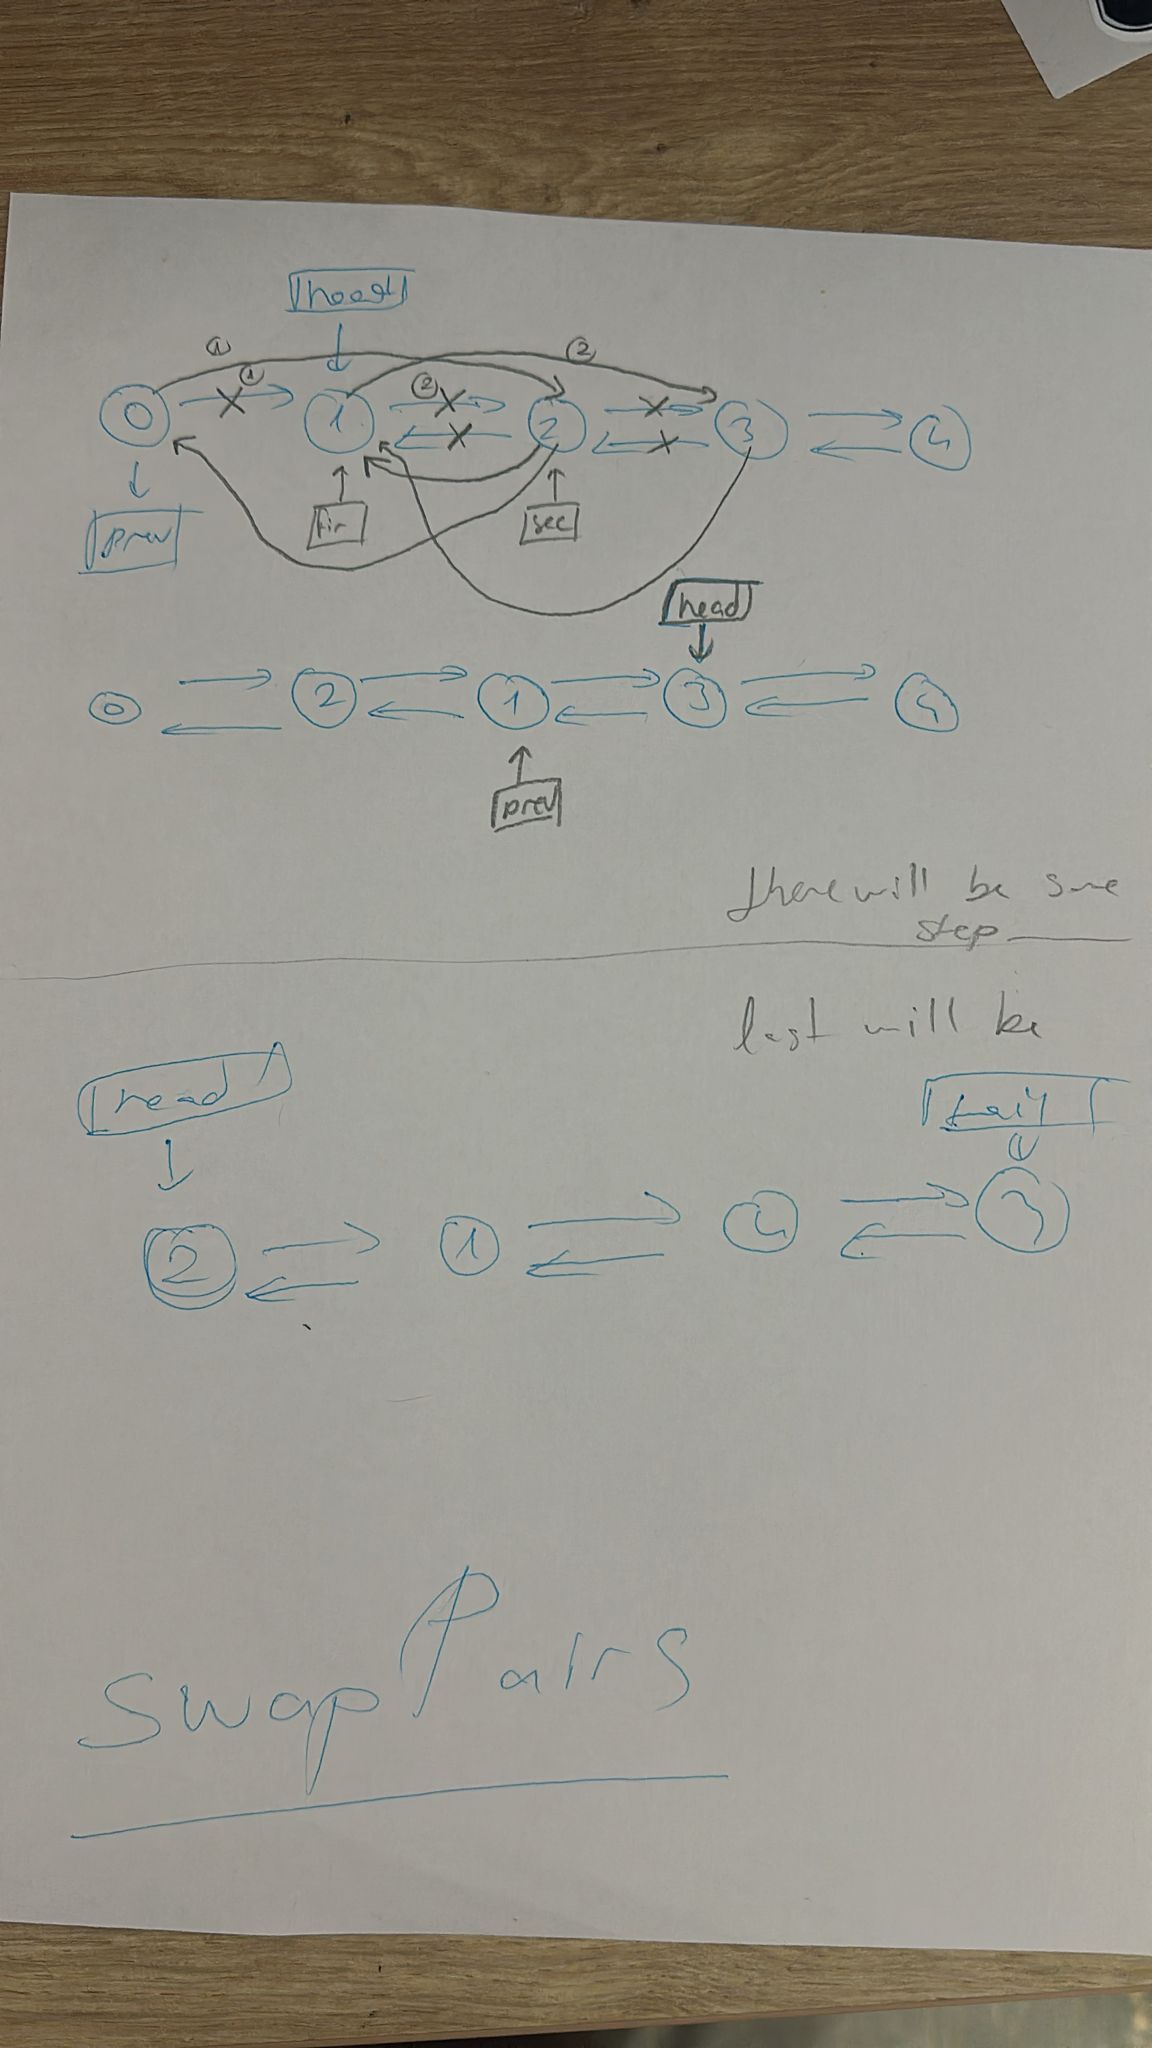 head
① ② 
① ②
0 1 2 3 4
prev fir sec
head
0 2 1 3 4
prev
there will be same
step
last will be
head tail
2 1 4 3
swapPairs